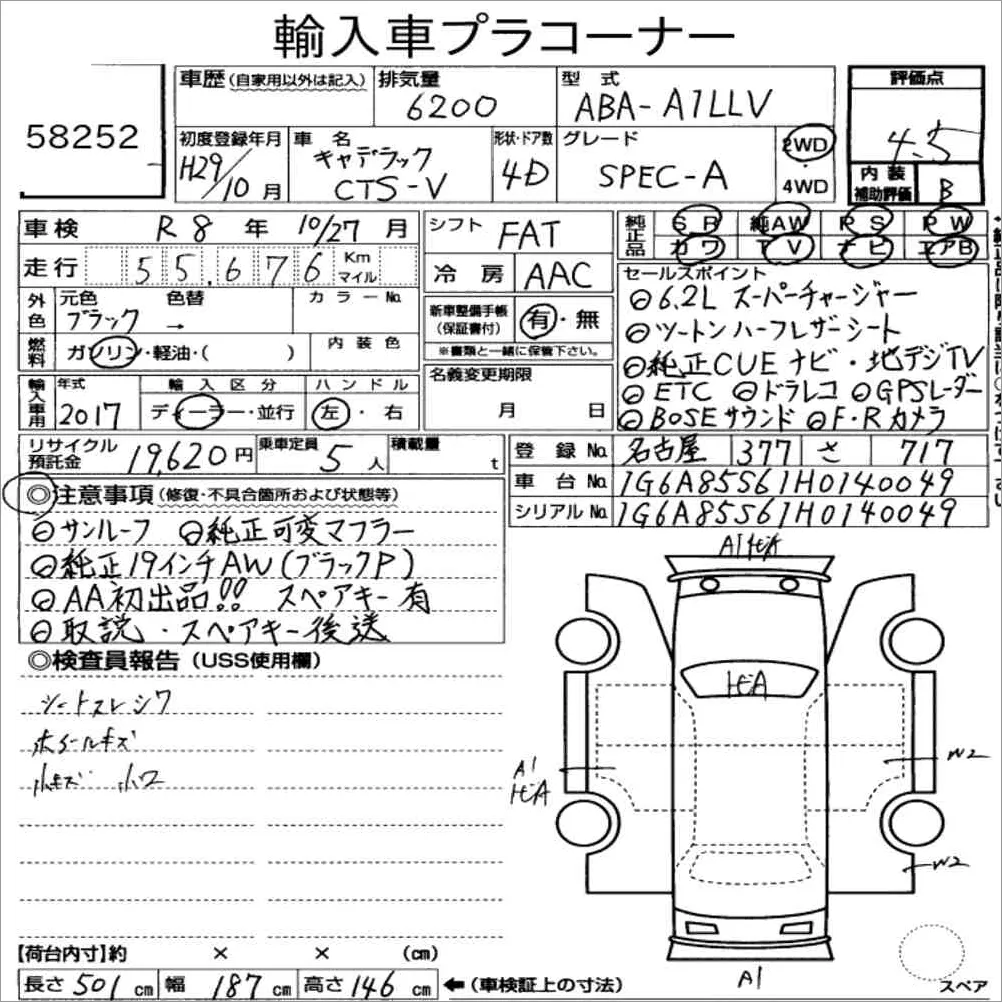 輸入車プラコーナー
58252
車歴 (自家用以外は記入)
排気量 6200
型式 ABA-A1LLV
評価点 4.5
内装補助評価 B
初度登録年月 H29/10月
車名 キャデラック CTS-V
形状・ドア数 4D
グレード SPEC-A
2WD・4WD
車検 R8年 10/27月
シフト FAT
純正品 SR 純AW RS PW
カワ TV ナビ エアB
走行 55,676 Km マイル
冷房 AAC
セールスポイント
6.2L スーパーチャージャー
ツートンハーフレザーシート
純正CUEナビ・地デジTV
ETC ドラレコ GPSレーダー
BOSEサウンド F・Rカメラ
外色 元色 ブラック → 色替 カラーNo.
新車整備手帳(保証書付) 有・無
※書類と一緒に保管下さい。
燃料 ガソリン・軽油・( )
内装色
名義変更期限 月 日
輸入車用 年式 2017
輸入区分 ディーラー・並行
ハンドル 左・右
リサイクル預託金 19,620円
乗車定員 5人
積載量 t
登録No. 名古屋 377 さ 717
車台No. 1G6A85S61H0140049
シリアルNo. 1G6A85S61H0140049
◎注意事項 (修復・不具合箇所および状態等)
サンルーフ 純正可変マフラー
純正19インチAW(ブラックP)
AA初出品!! スペアキー有
取説・スペアキー後送
◎検査員報告 (USS使用欄)
シートスレシワ
ホイールキズ
小キズ 小ワ
A1 トビA
トビA
A1
トビA
W2
W2
A1
スペア
【荷台内寸】約 × × (cm)
長さ 501 cm 幅 187 cm 高さ 146 cm ←(車検証上の寸法)